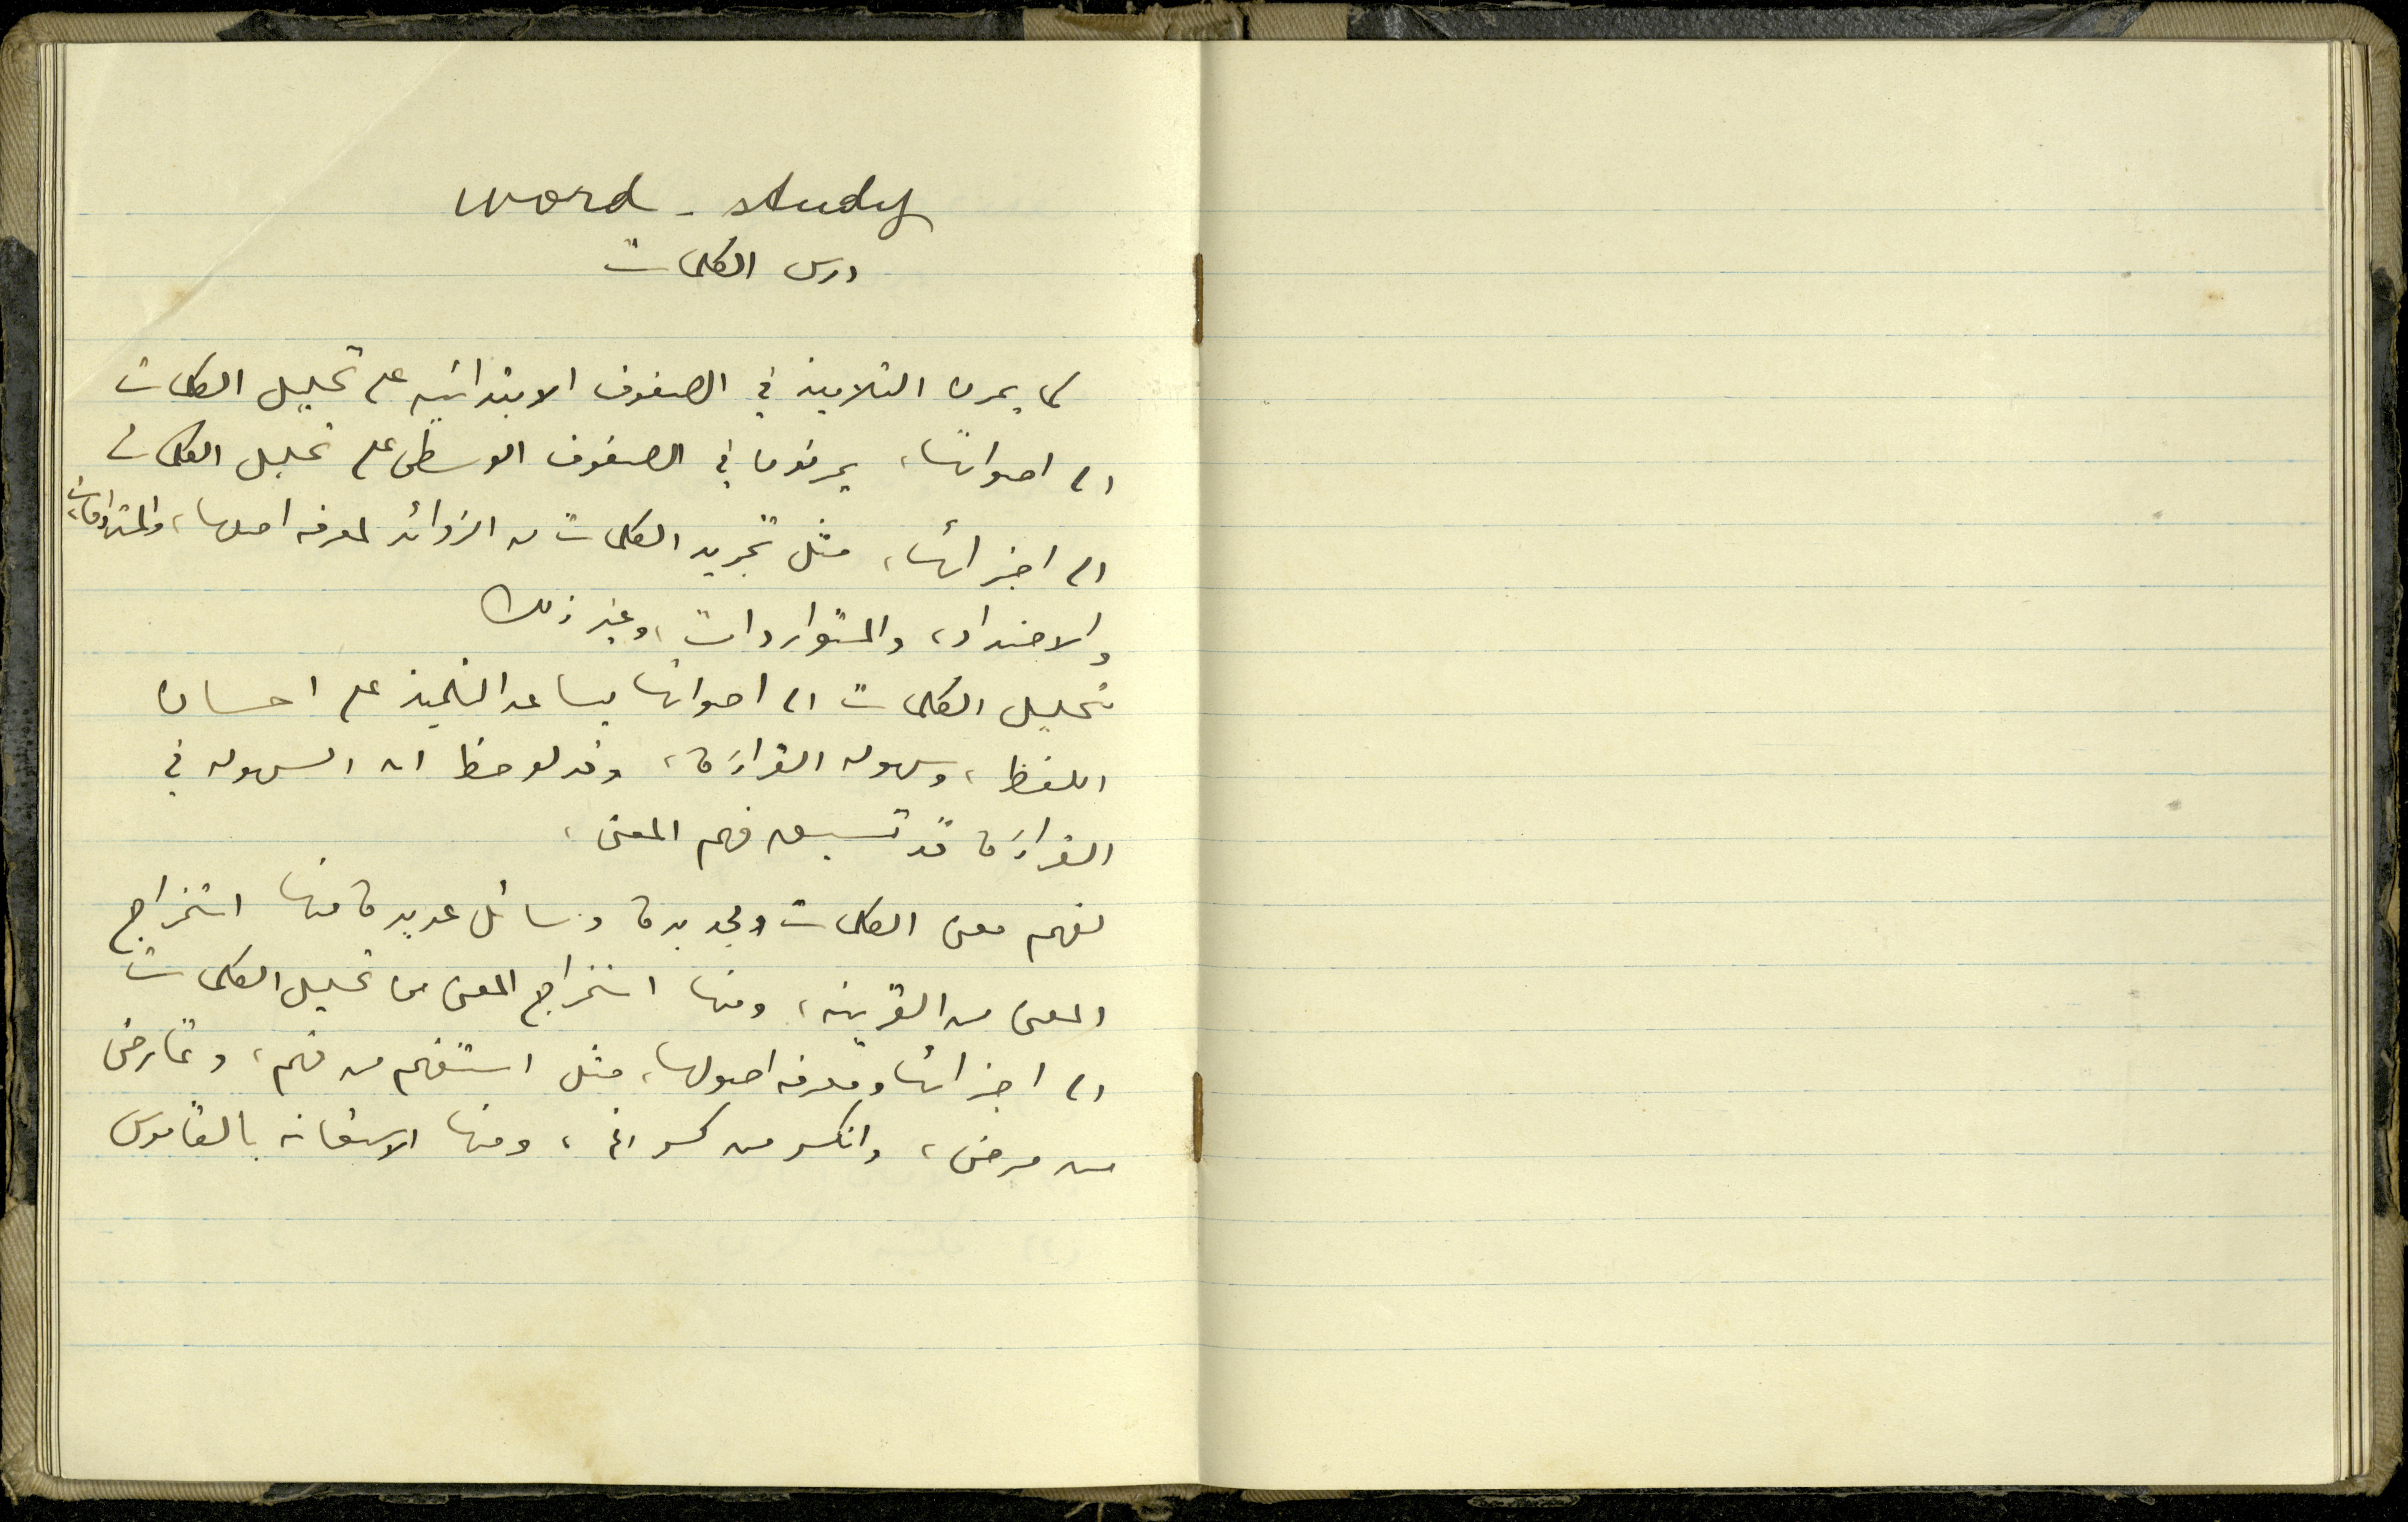 word - study
درس الكلمات
كما يمرن التلاميذ في الصفوف الابتدائيه على تحليل الكلمات
الى اصواتها، يمرنون في الصفوف الوسطى على تحليل الكلمات
الى اجزائها، مثل تجريد الكلمات من الزوائد لمعرفه اصلها، والمترادفات،
والاضداد، والمتواردات، وغير ذلك
تحليل الكلمات الى اصواتها يساعد التلميذ على احسان
اللفظ، وسهوله القراءة، وقد لوحظ ان السهوله في
القراءة قد تسبق فهم المعنى،
لفهم معنى الكلمات الجديدة وسائل عديدة منها استخراج
المعنى من القرينه، ومنها استخراج المعنى من تحليل الكلمات
الى اجزائها ومعرفه اصولها، مثل استفهم من فهم، وتمارض
من مرض، وانكسر من كسر الخ، ومنها الاستعانه بالقاموس